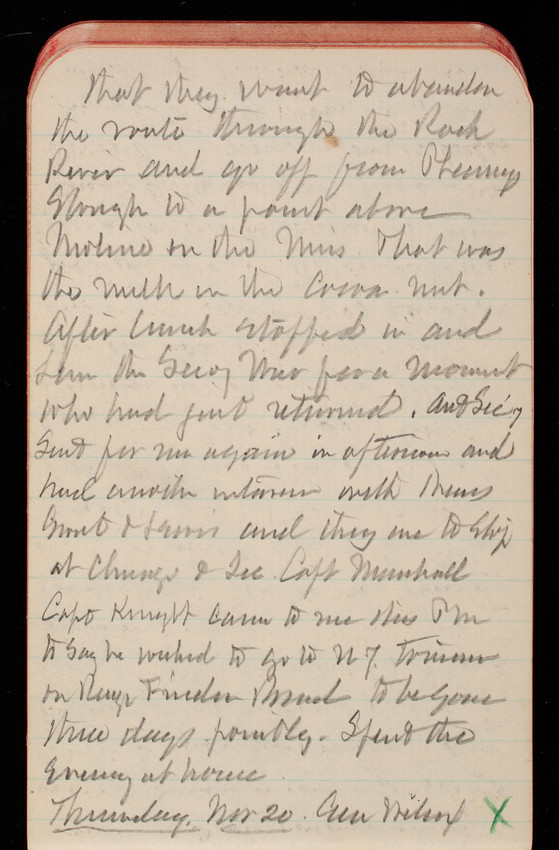 that they want to abandon
the route through the Rock
River and go off from Pennys
Slough to a point above
Moline on the Miss That was
the milk in the Cocoa nut.
After lunch stopped in and
saw the Secy War for a moment
who had just returned. And Secy
Sent for me again in afternoon and
had another interview with Messrs
Grant & Lewis and they are to stop
at Chicago & See Capt Marshall
Capt Knight came to me this PM
to say he wished to go to N.Y. tomorrow
on Range Finder Board to be gone
three days possibly. Spent the
Evening at house
Thursday, Nov 20. Gen Wilson X